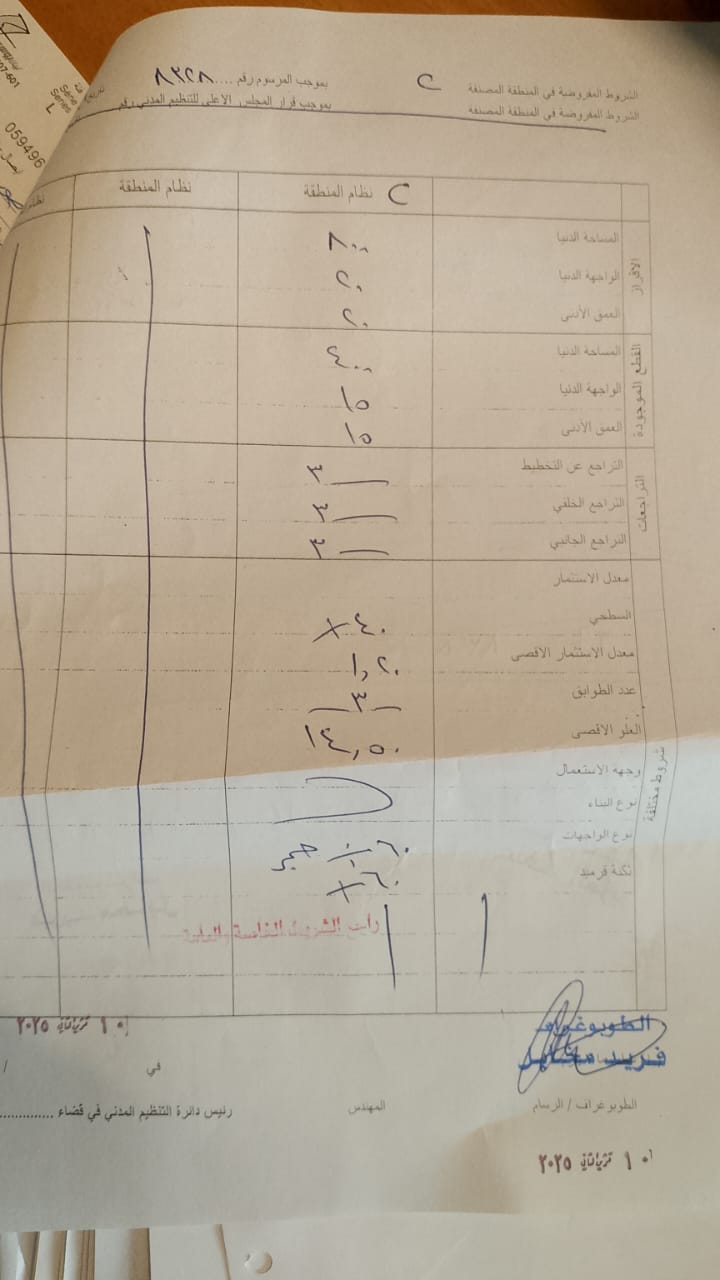 059496
07-601
الشروط المفروضة في المنطقة المصنفة C بموجب المرسوم رقم .... ٨٣٢٨
الشروط المفروضة في المنطقة المصنفة بموجب قرار المجلس الاعلى للتنظيم المدني رقم
C نظام المنطقة
نظام المنطقة
الافراز
المساحة الدنيا ٨٠٠
الواجهة الدنيا ٢٠
العمق الأدنى ٢٠
القطع الموجودة
المساحة الدنيا ٤٠٠
الواجهة الدنيا ١٥
العمق الأدنى ١٥
التراجعات
التراجع عن التخطيط ٣
التراجع الخلفي ٣
التراجع الجانبي ٣
شروط مختلفة
معدل الاستثمار
السطحي ٤٠ %
معدل الاستثمار الاقصى ١,٢٠
عدد الطوابق ٣
العلو الاقصى ١٤,٥٠
وجهة الاستعمال
نوع البناء
نوع الواجهات ٦٠ % حجر
تكنة قرميد ٦٠ %
الشروط الخاصة
١٠ تشرين الثاني ٢٠٢٥
الطوبوغراف
فريد
الطوبوغراف / الرسام
المهندس
رئيس دائرة التنظيم المدني في قضاء ..............
في / 
١٠ تشرين الثاني ٢٠٢٥